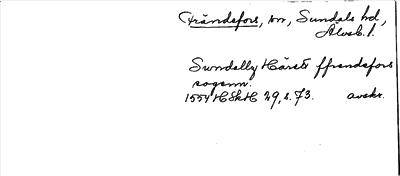 Frändefors, sn, Sundals hd,
Älvsb. l.
Swndallz Häradt ffrendefors
sogenn.
1554 HSkH 29, s. 73. avskr.